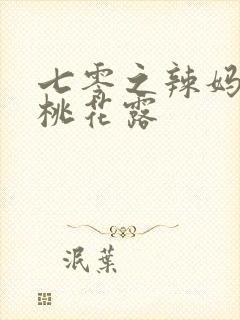 七零之辣妈
桃花露
泯葉